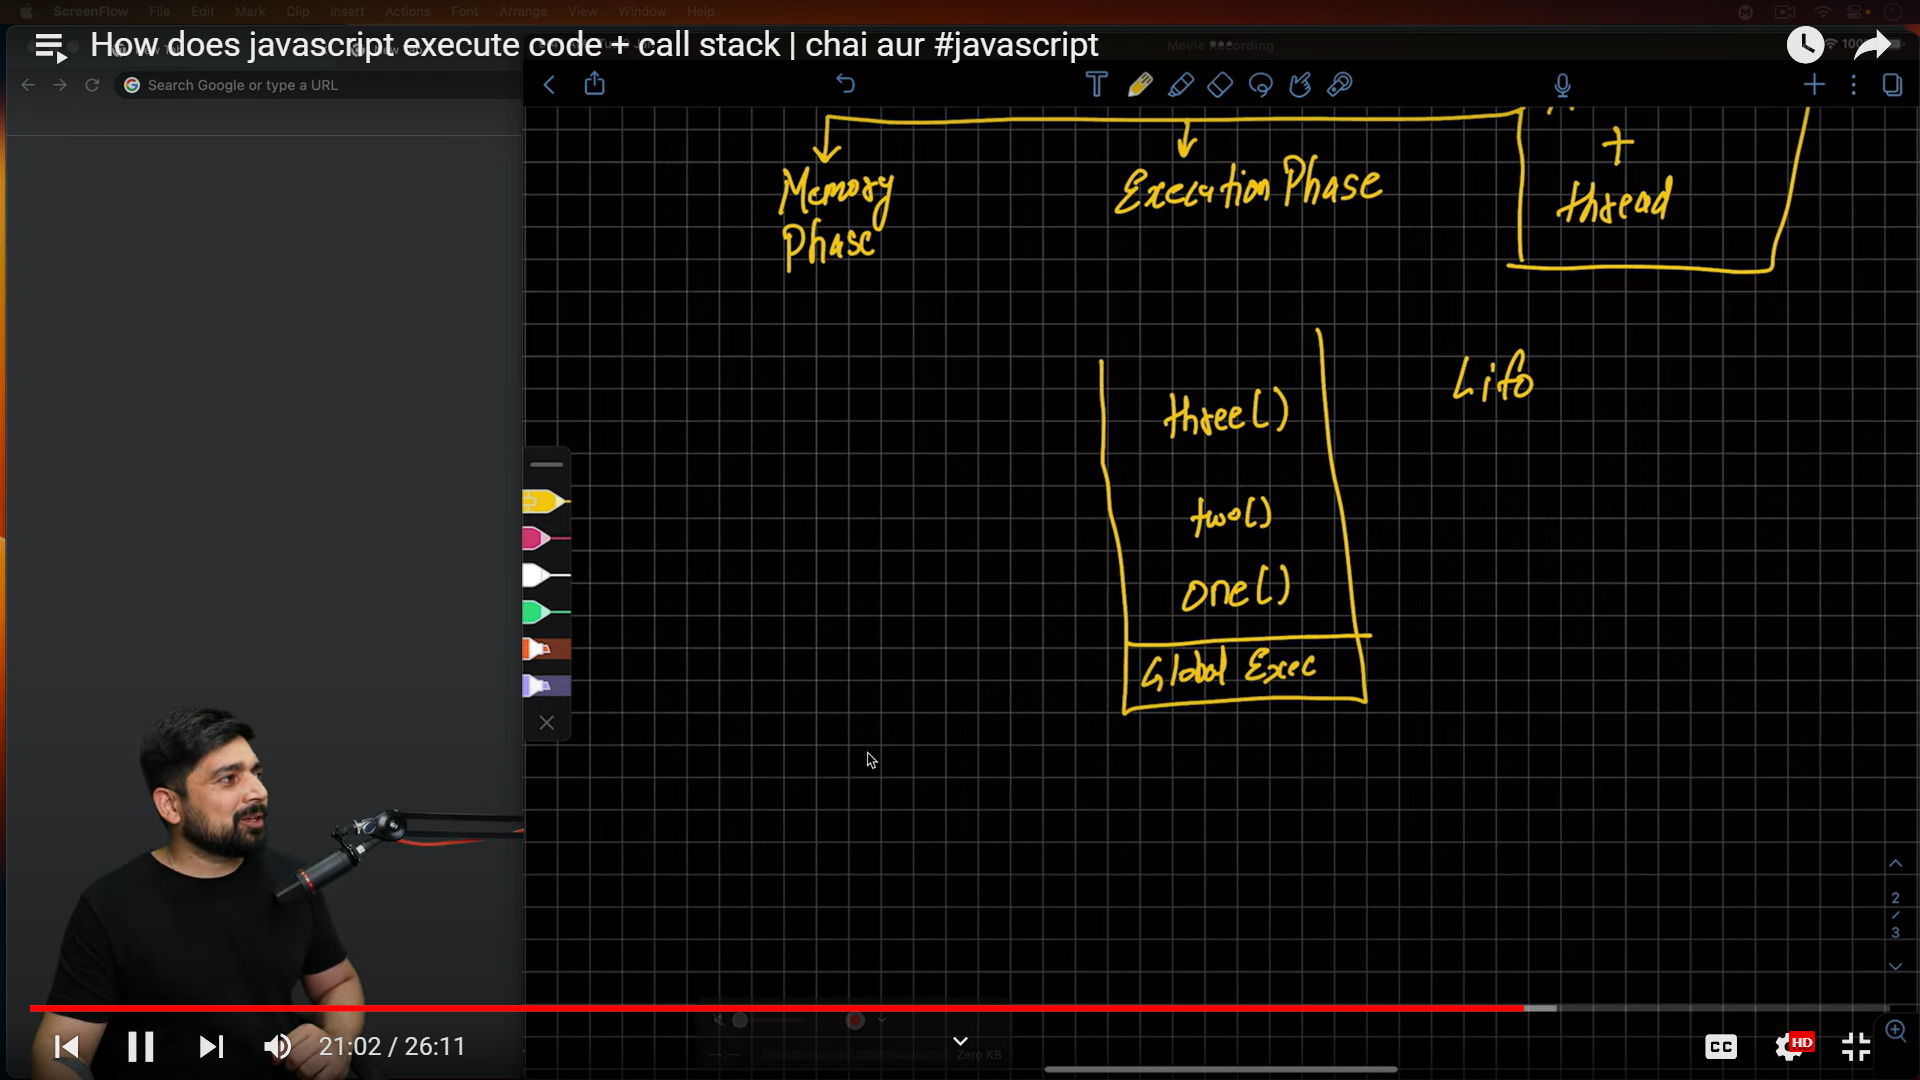 ScreenFlow File Edit Mark Clip Insert Actions Font Arrange View Window Help
How does javascript execute code + call stack | chai aur #javascript
Movie Recording
Search Google or type a URL
+
thread
Memory
Phase
Execution Phase
Lifo
three()
two()
one()
Global Exec
2
/
3
21:02 / 26:11
Zero KB
CC
HD